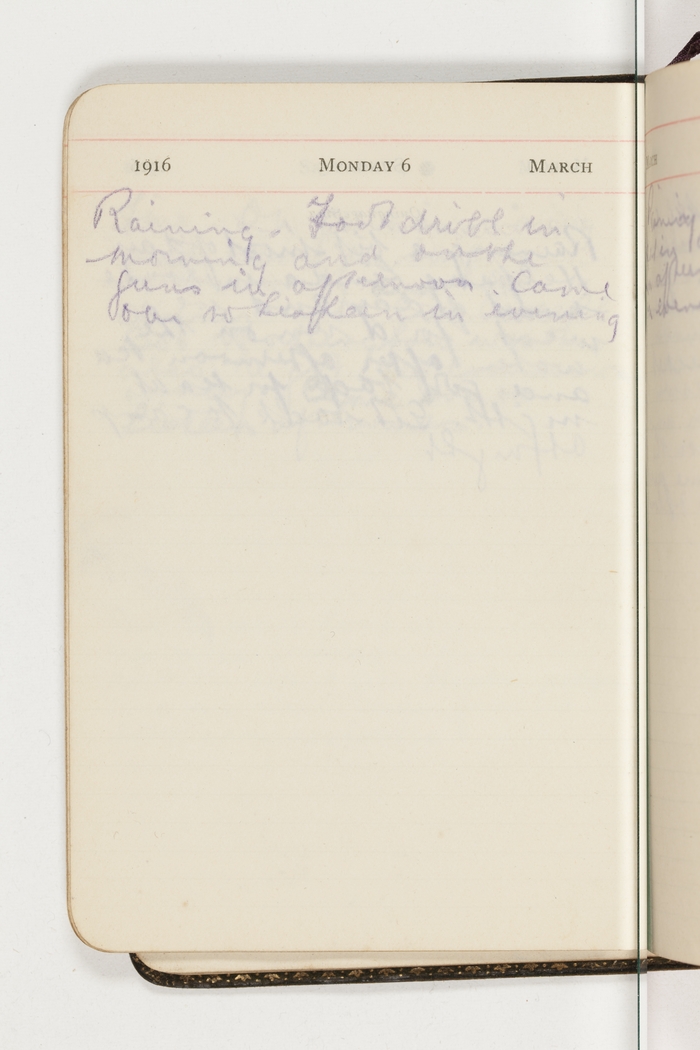 1916 MONDAY 6 MARCH
Raining. Foot drill in
morning and on the
guns in afternoon. Came
in evening